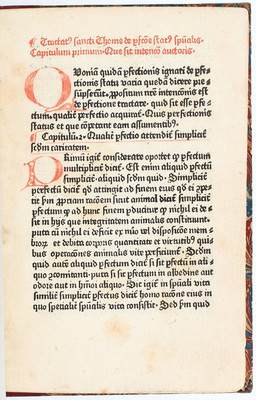 ¶ Tractatꝰ sancti Thome de ꝑfcōne statꝰ spūalis.
Capitulum primum. Que sit intencō auctoris.
QVoniā quidā ꝑfectionis ignari de ꝑfe
ctionis statu varia quedā dicere pre
sūpserūt. ꝓpositum nr̄e intencōnis est
de ꝑfectione tractare. quid sit esse ꝑfe
ctum. qualiť perfectio acquirať. Quis perfectionis
status et que cōpetant eam assumentibꝰ.
¶ Capitulū .2. Qualiť ꝑfectio attendiť simpliciť
scd̄m caritatem.
PRimū igiť considerare oportet qꝫ ꝑfectum
multipliciť diciť. Est enim aliquid ꝑfectū
simpliciť. aliquid scd̄m quid. Simpliciť
perfectū diciť qd̄ attingit ad finem eius qd̄ ei ꝯpe
tit scd̄m ꝓpriam racōem sicut animal diciť simpliciť
ꝑfectum qn̄ ad hunc finem ꝑduciť ut nichil ei de
sit in hijs que integritatem animalis constituunt.
puta cū nichil ei deficit ex nūo vel disposicōe mem
broꝝ et debita corporis quantitate et virtutibꝰ qui
bus operacōnes animalis vite perficiunť. Scd̄m
quid autē aliquid ꝑfectum diciť si sit ꝑfectū in ali
quo ꝯcomitanti. puta si sit ꝑfectum in albedine aut
odore aut in hmōi aliquo. Sic igiť in spūali vita
simili
simpliciť ꝑfectus diciť homo racōne eius in
quo spūalis vita consistit. Sed scd̄m quid